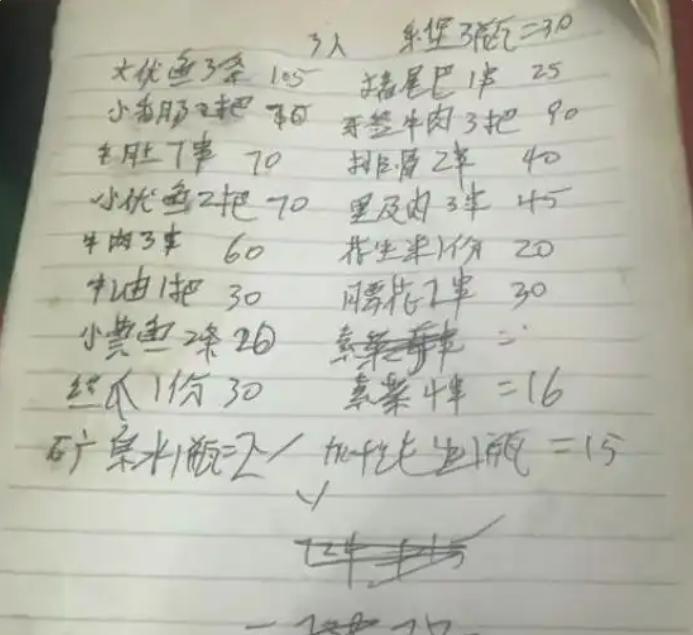 3人 乐堡3瓶=30
大优鱼3条 105 猪尾巴1串 25
小香肠2把 牙签牛肉3把 90
毛肚7串 70 排骨2串 40
小优鱼2把 70 里及肉3串 45
牛肉3串 60 花生米1份 20
牛油1把 30 腰花2串 30
小黄鱼2条 20 素菜
丝瓜1份 30 素菜4串 =16
矿泉水1瓶=2 加1瓶 =15